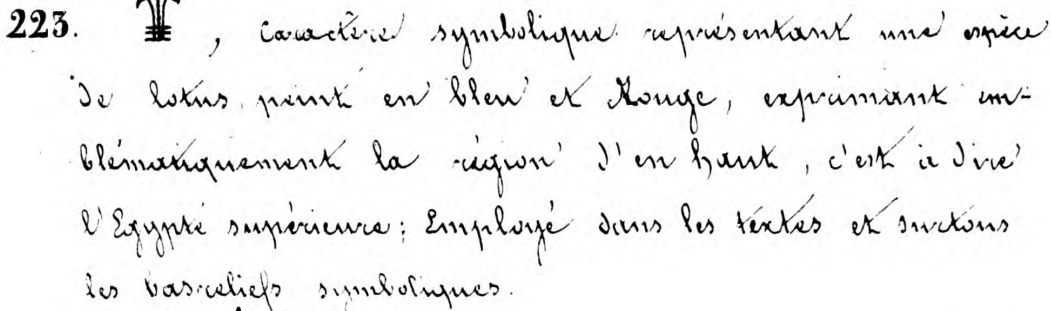 223. , Caractère symbolique représentant une espèce
De lotus peint en bleu et Rouge, exprimant em-
blématiquement la région d'en haut, c'est à dire
l'Egypte supérieure; Employé dans les textes et surtous
les basreliefs symboliques.